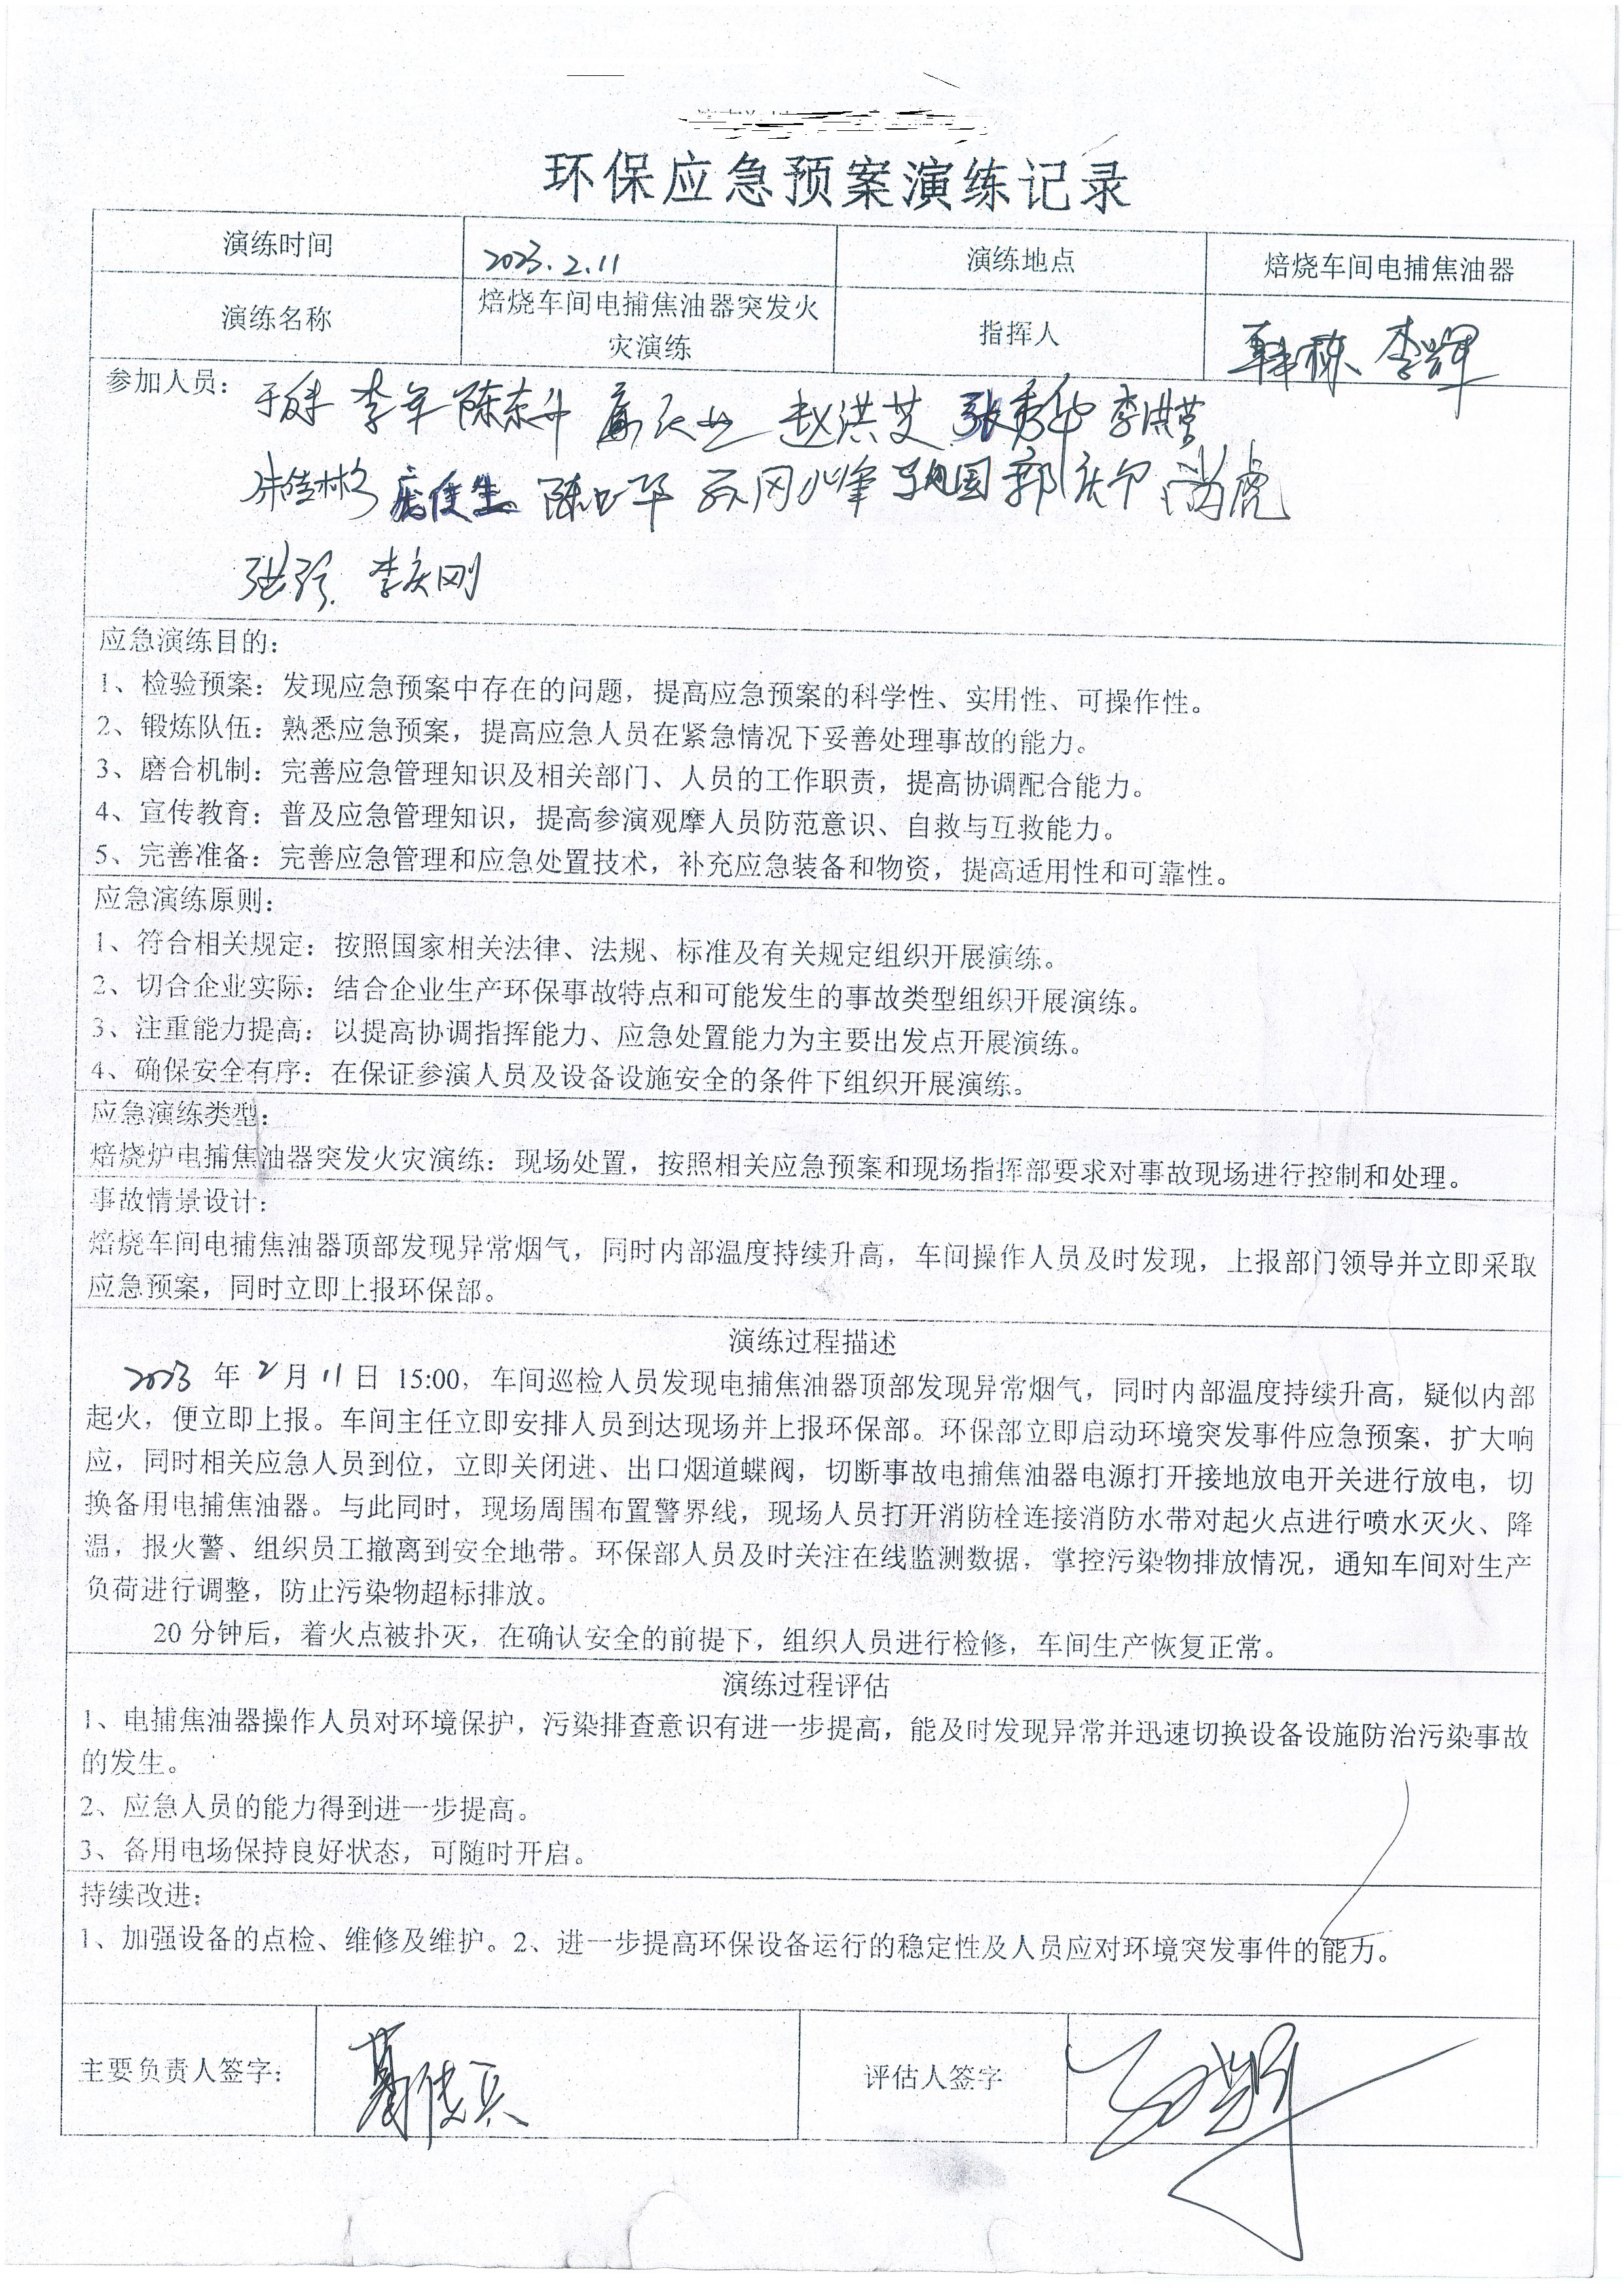 环保应急预案演练记录
演练时间 2023.2.11 演练地点 焙烧车间电捕焦油器
演练名称 焙烧车间电捕焦油器突发火灾演练 指挥人 韩栋 李辉
参加人员： 李军 陈东升 赵洪艾 张秀华 李洪营
朱佳彬 郭庆尔 尚虎
李庆刚
应急演练目的：
1、检验预案：发现应急预案中存在的问题，提高应急预案的科学性、实用性、可操作性。
2、锻炼队伍：熟悉应急预案，提高应急人员在紧急情况下妥善处理事故的能力。
3、磨合机制：完善应急管理知识及相关部门、人员的工作职责，提高协调配合能力。
4、宣传教育：普及应急管理知识，提高参演观摩人员防范意识、自救与互救能力。
5、完善准备：完善应急管理和应急处置技术，补充应急装备和物资，提高适用性和可靠性。
应急演练原则：
1、符合相关规定：按照国家相关法律、法规、标准及有关规定组织开展演练。
2、切合企业实际：结合企业生产环保事故特点和可能发生的事故类型组织开展演练。
3、注重能力提高：以提高协调指挥能力、应急处置能力为主要出发点开展演练。
4、确保安全有序：在保证参演人员及设备设施安全的条件下组织开展演练。
应急演练类型：
焙烧炉电捕焦油器突发火灾演练：现场处置，按照相关应急预案和现场指挥部要求对事故现场进行控制和处理。
事故情景设计：
焙烧车间电捕焦油器顶部发现异常烟气，同时内部温度持续升高，车间操作人员及时发现，上报部门领导并立即采取
应急预案，同时立即上报环保部。
演练过程描述
2023 年 2 月 11 日 15:00，车间巡检人员发现电捕焦油器顶部发现异常烟气，同时内部温度持续升高，疑似内部
起火，便立即上报。车间主任立即安排人员到达现场并上报环保部。环保部立即启动环境突发事件应急预案，扩大响
应，同时相关应急人员到位，立即关闭进、出口烟道蝶阀，切断事故电捕焦油器电源打开接地放电开关进行放电，切
换备用电捕焦油器。与此同时，现场周围布置警界线，现场人员打开消防栓连接消防水带对起火点进行喷水灭火、降
温，报火警、组织员工撤离到安全地带。环保部人员及时关注在线监测数据，掌控污染物排放情况，通知车间对生产
负荷进行调整，防止污染物超标排放。
20 分钟后，着火点被扑灭，在确认安全的前提下，组织人员进行检修，车间生产恢复正常。
演练过程评估
1、电捕焦油器操作人员对环境保护，污染排查意识有进一步提高，能及时发现异常并迅速切换设备设施防治污染事故
的发生。
2、应急人员的能力得到进一步提高。
3、备用电场保持良好状态，可随时开启。
持续改进：
1、加强设备的点检、维修及维护。2、进一步提高环保设备运行的稳定性及人员应对环境突发事件的能力。
主要负责人签字： 评估人签字